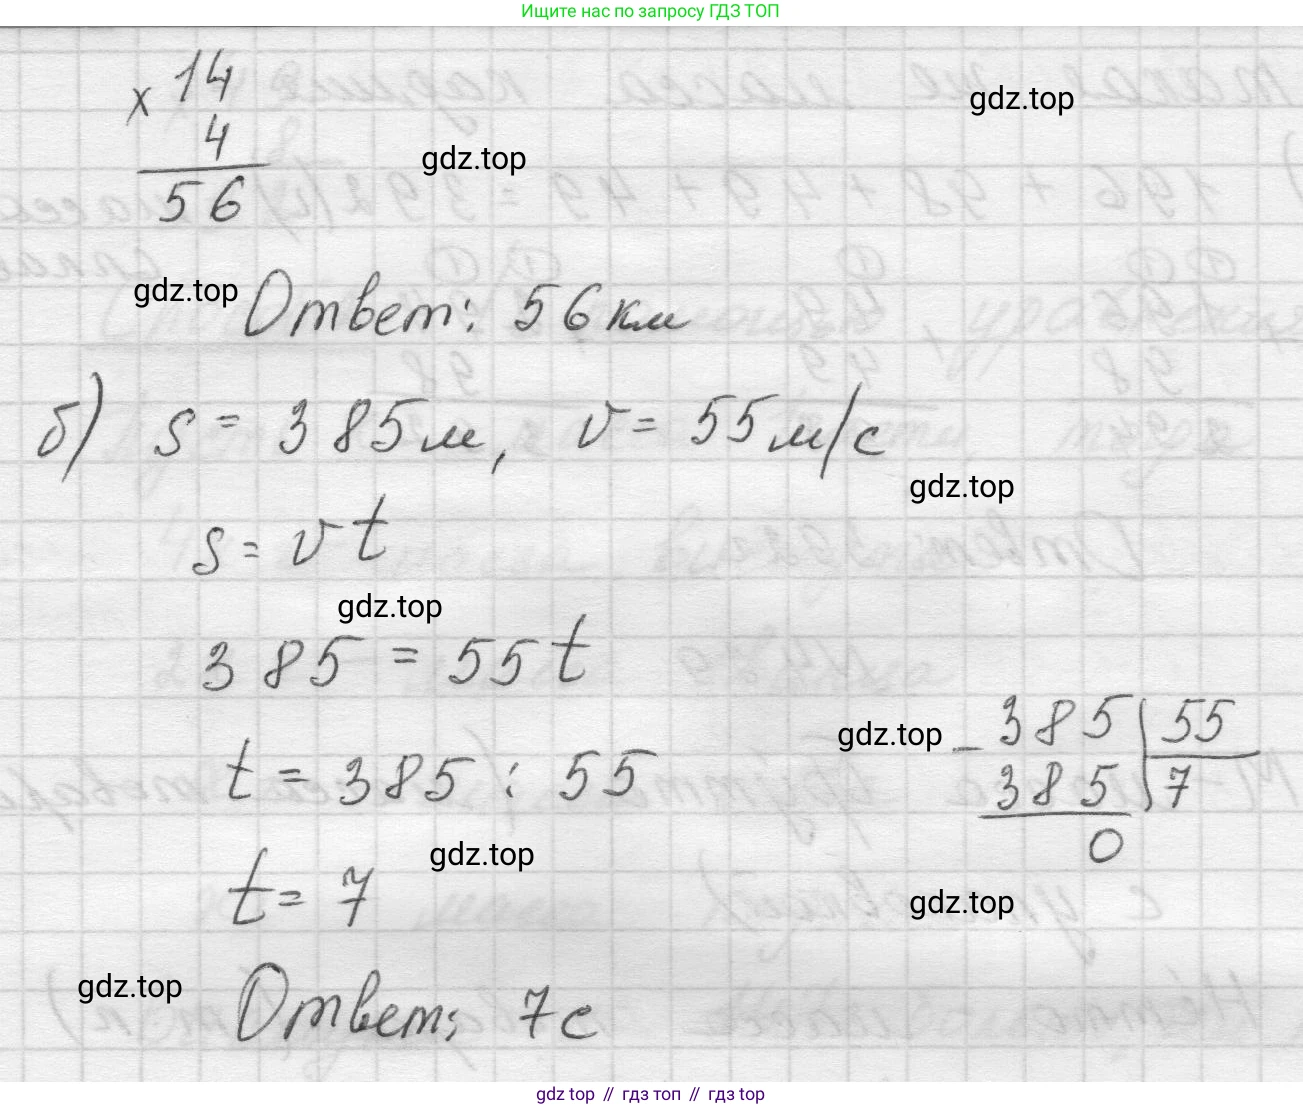 Ищите нас по запросу ГДЗ ТОП
× 14
gdz.top
4
gdz.top
56
gdz.top
Ответ: 56 км
б) s = 385 м, v = 55 м/с
gdz.top
s = vt
gdz.top
385 = 55t
gdz.top
− 385 | 55
t = 385 : 55
385 | 7
0
gdz.top
t = 7
gdz.top
gdz.top
Ответ: 7 с
gdz top // гдз топ // gdz top